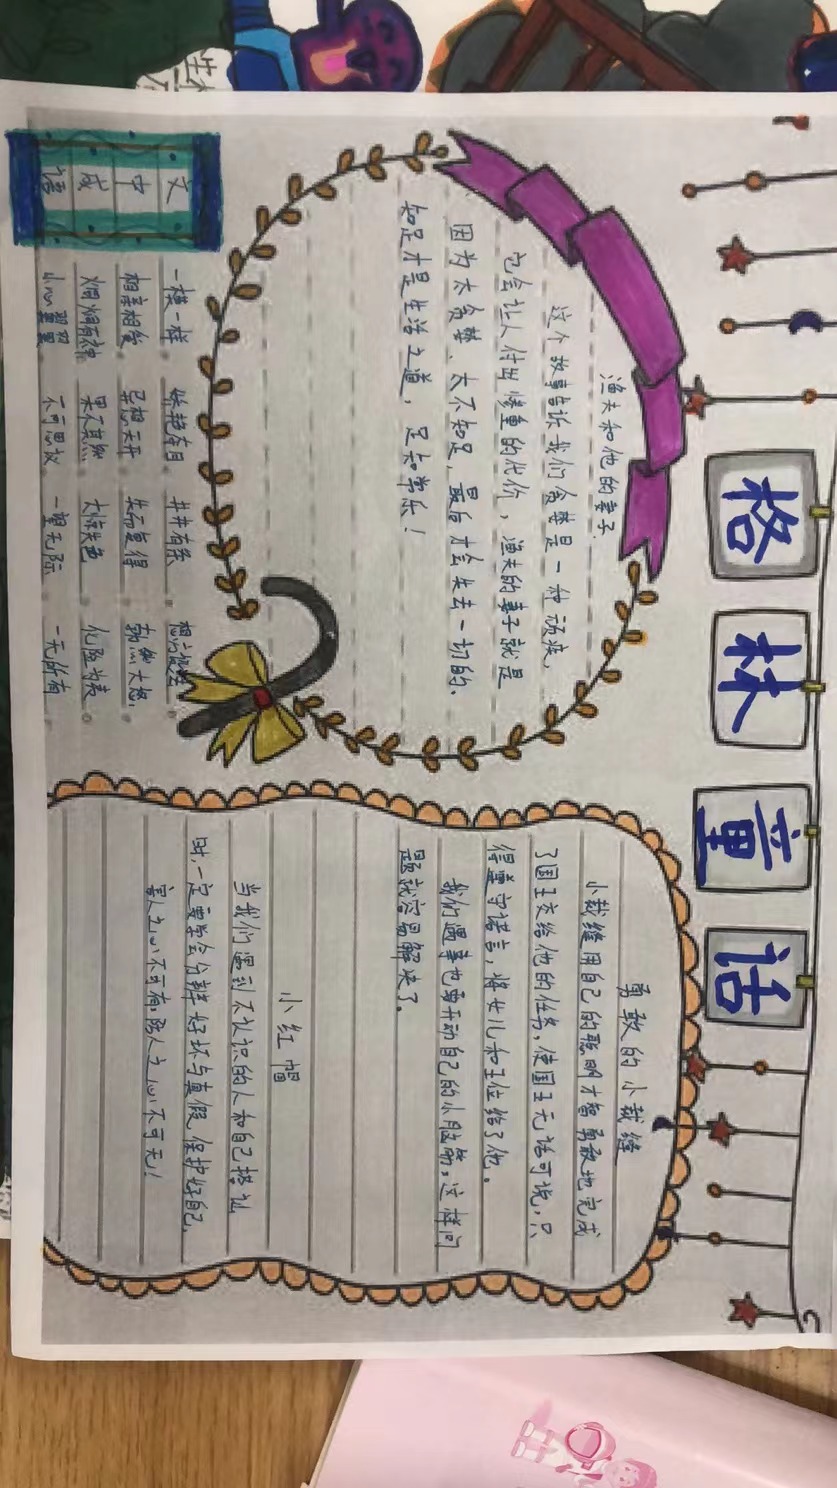 格林童话
渔夫和他的妻子
这个故事告诉我们贪婪是一种顽疾,
它会让人付出惨重的代价,渔夫的妻子就是
因为太贪婪、太不知足,最后才会失去一切的。
知足才是生活之道,足知常乐!
文中成语
一模一样 妖艳夺目 井井有条
相亲相爱 异想天开 失而复得 勃然大怒
炯炯有神 果不其然 大惊失色 化险为夷
小心翼翼 不可思议 一望无际 一无所有
勇敢的小裁缝
小裁缝用自己的聪明才智勇敢地完成
了国王交给他的任务,使国王无话可说,只
得遵守诺言,将女儿和王位给了他。
我们遇事也要开动自己的小脑筋,这样问
题就容易解决了。
小红帽
当我们遇到不认识的人和自己搭讪
时,一定要学会分辨好坏与真假,保护好自己,
害人之心不可有,防人之心不可无!